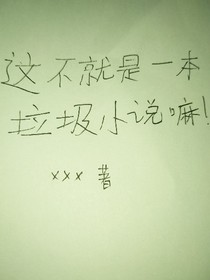 这不就是一本
垃圾小说嘛!
××× 著